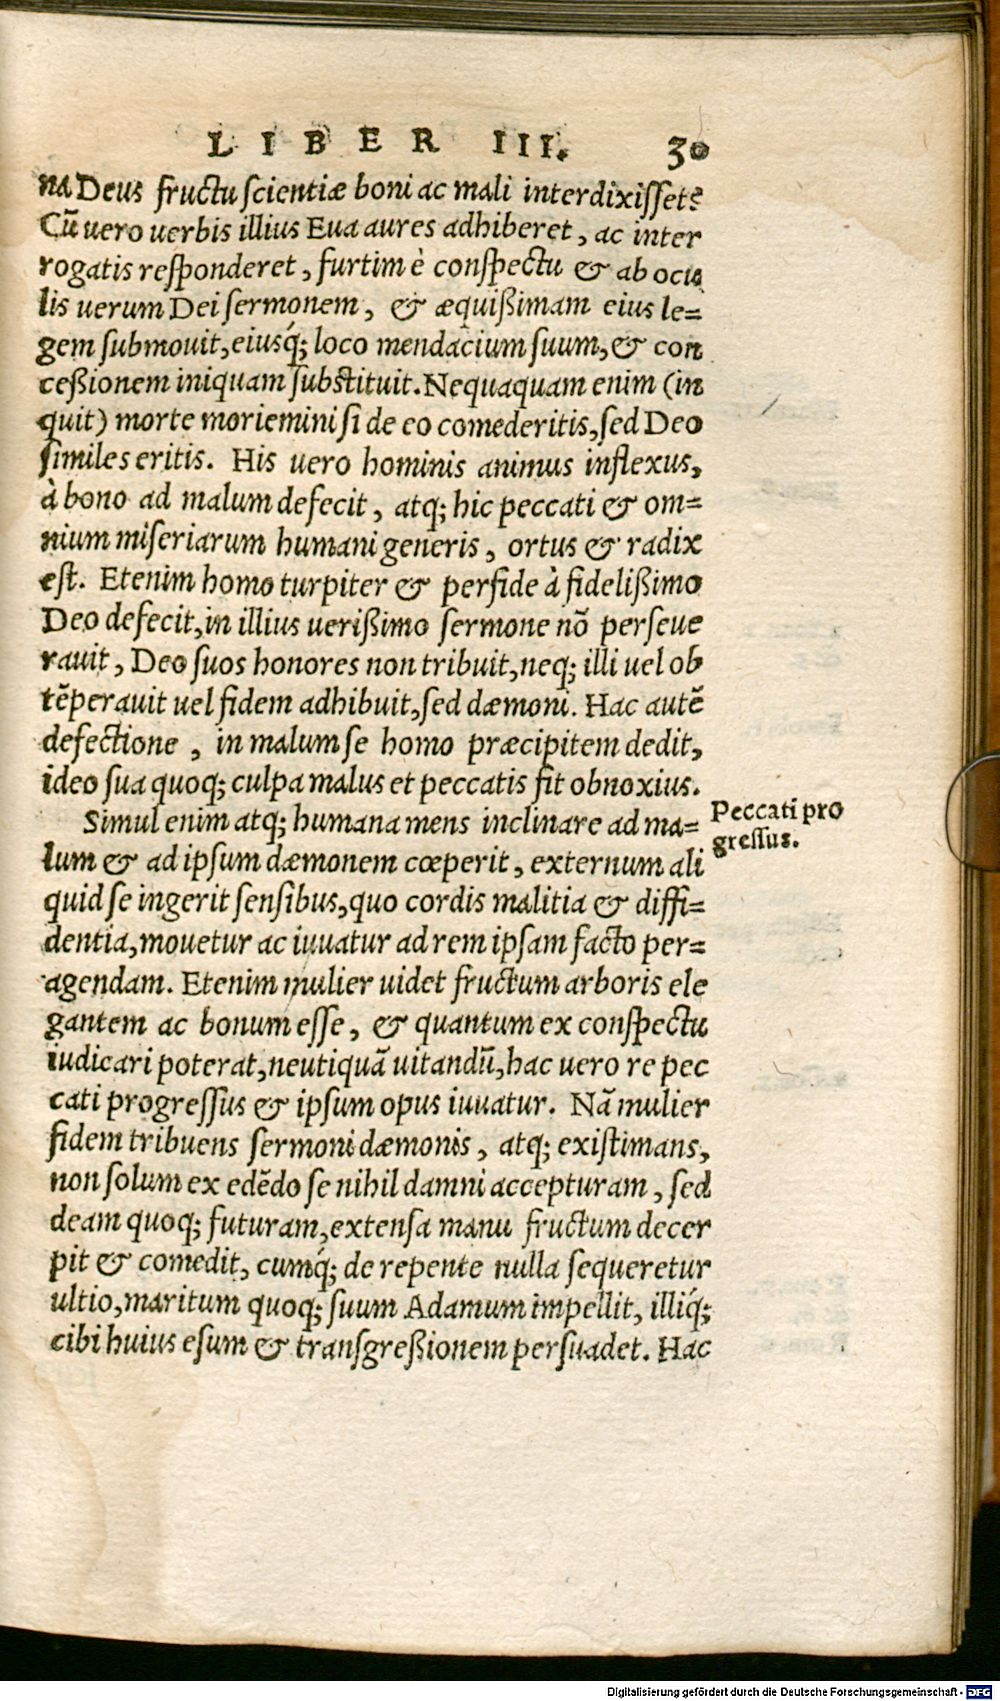 LIBER III. 30
na Deus fructu scientiæ boni ac mali interdixisset?
Cũ uero uerbis illius Eua aures adhiberet, ac inter
rogatis responderet, furtim è conspectu & ab ocu
lis uerum Dei sermonem, & æquißimam eius le=
gem submouit, eiusq́; loco mendacium suum, & con
ceßionem iniquam substituit. Nequaquam enim (in
quit) morte moriemini si de eo comederitis, sed Deo
similes eritis. His uero hominis animus inflexus,
à bono ad malum defecit, atq; hic peccati & om=
nium miseriarum humani generis, ortus & radix
est. Etenim homo turpiter & perfide à fidelißimo
Deo defecit, in illius uerißimo sermone nõ perseue
rauit, Deo suos honores non tribuit, neq; illi uel ob
tẽperauit uel fidem adhibuit, sed dæmoni. Hac autẽ
defectione, in malum se homo præcipitem dedit,
ideo sua quoq; culpa malus et peccatis fit obnoxius.
Simul enim atq; humana mens inclinare ad ma=
lum & ad ipsum dæmonem cœperit, externum ali
quid se ingerit sensibus, quo cordis malitia & diffi=
dentia, mouetur ac iuuatur ad rem ipsam facto per=
agendam. Etenim mulier uidet fructum arboris ele
gantem ac bonum esse, & quantum ex conspectu
iudicari poterat, neutiquã uitandũ, hac uero re pec
cati progressus & ipsum opus iuuatur. Nã mulier
fidem tribuens sermoni dæmonis, atq; existimans,
non solum ex edẽdo se nihil damni accepturam, sed
deam quoq; futuram, extensa manu fructum decer
pit & comedit, cumq́; de repente nulla sequeretur
ultio, maritum quoq; suum Adamum impellit, illiq́;
cibi huius esum & transgreßionem persuadet. Hac
Peccati pro
gressus.
Digitalisierung gefördert durch die Deutsche Forschungsgemeinschaft - DFG